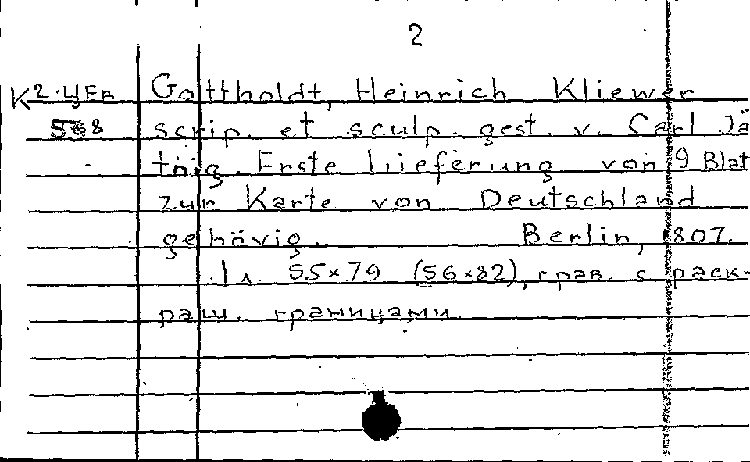 2
К2-ЦЕв Gottholdt, Heinrich Kliewer
568 scrip. et sculp. gest. v. Carl Jä
tnig. Erste Lieferung von 9 Blat
zur Karte von Deutschland
gehövig. Berlin, 1807.
1л. 55×79 (56×82), грав. с раск-
раш. границами.